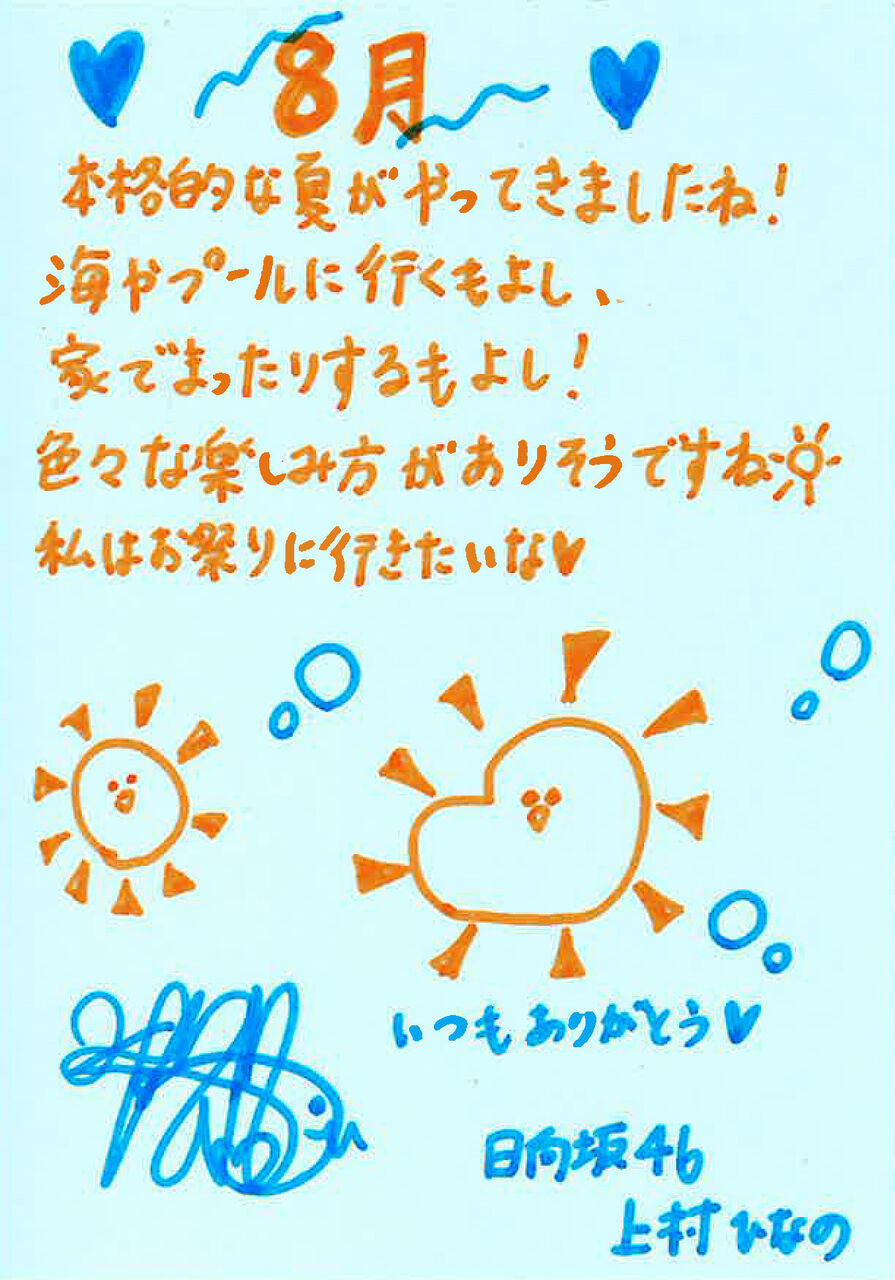 8月
本格的な夏がやってきましたね!
海やプールに行くもよし、
家でまったりするもよし!
色々な楽しみ方がありそうですね
私はお祭りに行きたいな♥
いつもありがとう♥
日向坂46
上村ひなの